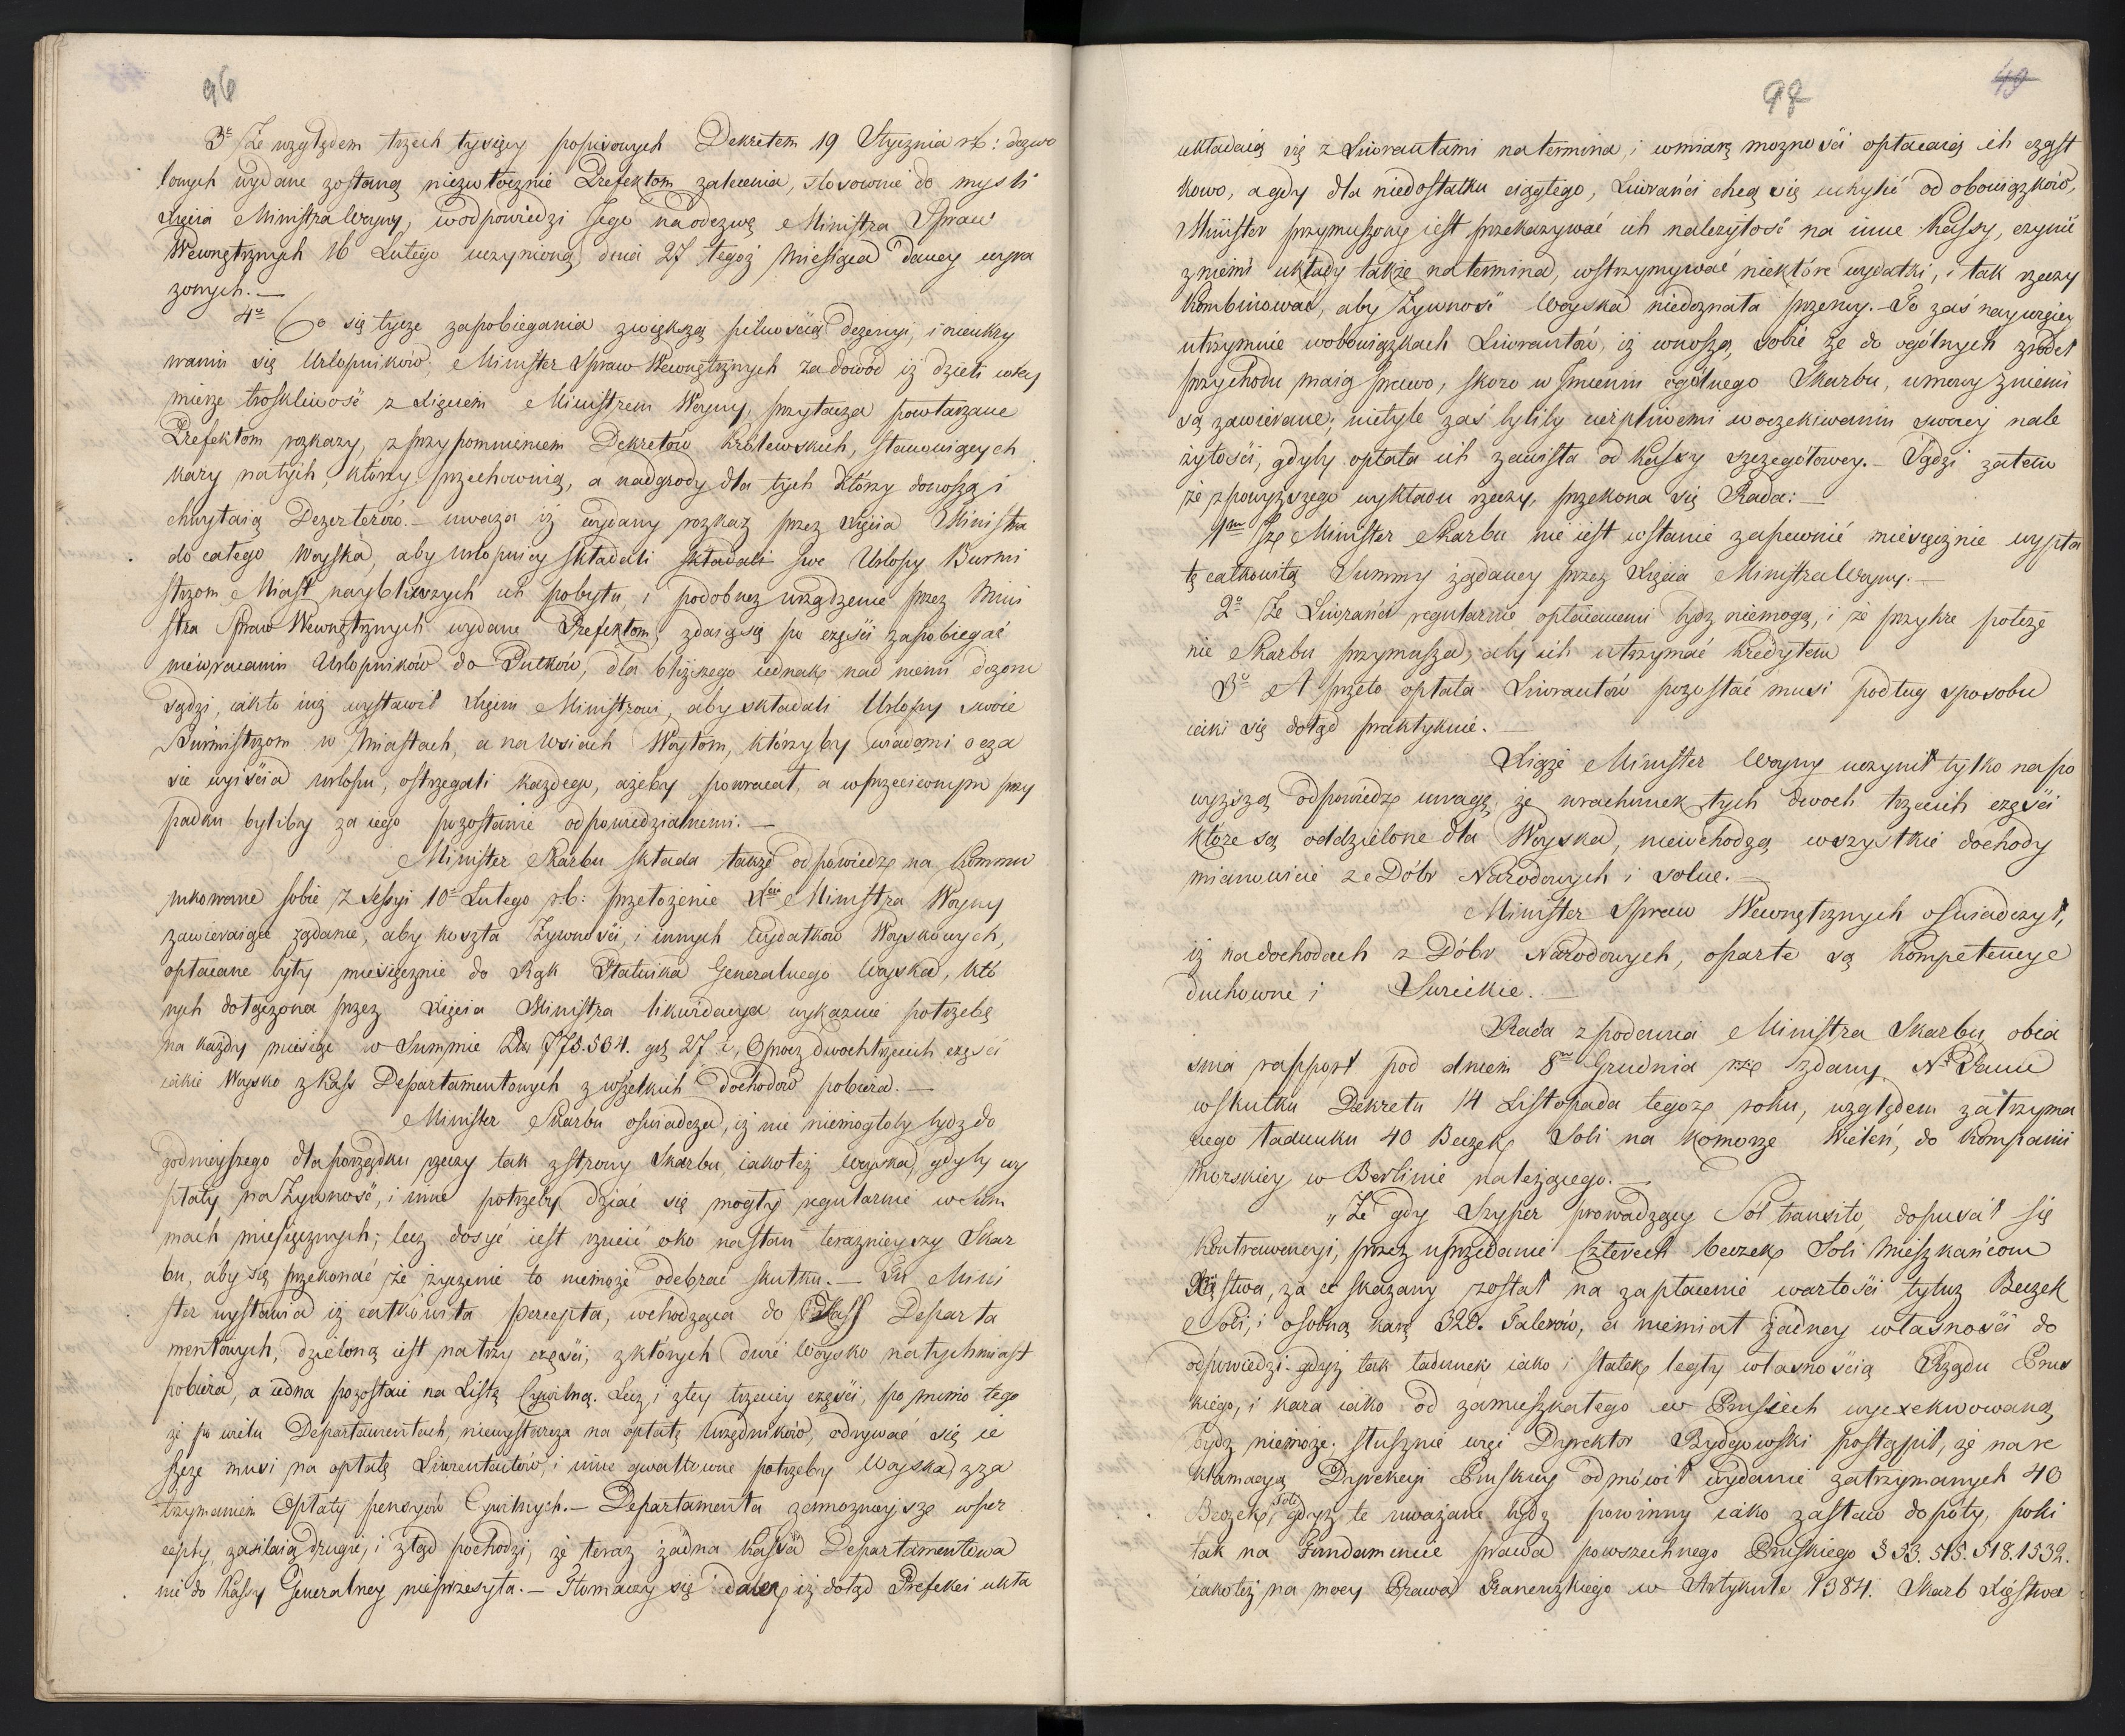 96
3e Że względem trzech tysięcy popisowych Dekretem 19 Stycznia r.b: dozwo
lonych wydane zostaną niezwłocznie Prefektom zalecenia, stosownie do myśli
Xięcia Ministra Woyny, w odpowiedzi Jego na odezwę Ministra Spraw
Wewnętrznych 16 Lutego uczynioną dnia 27 tegoż Miesiąca daney wyra
żonych. —
4e Co się tycze zapobiegania zwiększą pilnością dezercyi, i nieukry
waniu się Urlopników, Minister Spraw Wewnętrznych za dowód iż dzieli w tey
mierze troskliwość z Xięciem Ministrem Woyny, przytacza powtarzane
Prefektom rozkazy, z przypomnieniem Dekretów Królewskich, stanowiących
kary na tych, którzy przechowuią, a nadgrody dla tych którzy donoszą i
chwytaią Dezerterów. — uważa iż wydany rozkaz przez Xięcia Ministra
do całego Woyska, aby Urlopnicy składali składali swe Urlopy Burmi
strzom Miast naybliższych ich pobytu, i podobnez urządzenie przez Mini
stra Spraw Wewnętrznych wydane Prefektom, zdaią się po części zapobiegać
niewracaniu Urlopników do Pułków, dla bliższego iednak nad niemi dozoru
sądzi, iak to iuż wystawił Xięciu Ministrowi, aby składali Urlopy swoie
Burmistrzom w Miastach, a na Wsiach Woytom, którzyby wiadomi o cza
sie wyiścia urlopu, ostrzegali każdego, ażeby powracał, a w przeciwnym przy
padku byliby za iego pozostanie odpowiedzialnemi. —
Minister Skarbu składa także odpowiedź na kommu
nikowane sobie z Sessyi 10e Lutego r.b: przełożenie Xcia Ministra Woyny
zawieraiące żądanie, aby koszta Żywności, i innych Wydatków Woyskowych,
opłacane były miesięcznie do Rąk Płatnika Generalnego Woyska, któ
rych dołączona przez Xięcia Ministra likwidacya wykazuie potrzebę
na każdy miesiąc w Summie Złp 773.504. gr 27 i, Oprocz dwoch trzecich części
iakie Woysko z Kass Departamentowych z wszelkich dochodów pobiera. —
Minister Skarbu oświadcza, iż nic niemogłoby bydz do
godnieyszego dla porządku rzeczy tak z strony Skarbu iakoteż Woyska, gdyby wy
płaty na Żywność, i inne potrzeby dziać się mogły regularnie w Sum
mach miesięcznych; lecz dosyć iest rzucić oko na stan teraznieyszy Skar
bu, aby się przekonać że życzenie to niemoże odebrać skutku. — Tu Mini
ster wystawia iż całkowita percepta, wchodząca do Kass Departa
mentowych, dzieloną iest na trzy części, z których dwie Woysko natychmiast
pobiera, a iedna pozostaie na Listę Cywilną. Lecz i z tey trzeciey części, po mimo tego
że po wielu Departamentach, niewystarcza na opłatę Urzędników, odrywać się ie
szcze musi na opłatę Liwerantów, i inne gwałtowne potrzeby Woyska, z za
trzymaniem Opłaty pensyów Cywilnych. — Departamenta zamożnieysze w per
cepty, zasilaią drugie, i ztąd pochodzi, że teraz żadna kassa Departamentowa
nic do Kassy Generalney nieprzesyła. — Tłomaczy się daley iż dotąd Prefekci ukła
97 49
układaią się z Liwerantami na termina, i w miarę możności opłacaią ich cząst
kowo, a gdy dla niedostatku ciągłego, Liweranci chcą się uchylić od obowiązków,
Minister przymuszony iest przekazywać ich należytość na inne Kassy, czynić
z niemi układy także na termina, wstrzymywać niektóre wydatki, i tak rzeczy
kombinować, aby Żywność Woyska niedoznała przerwy. — To zaś naywięcey
utrzymuie w obowiązkach Liwerantów, iż wnoszą sobie że do ogólnych źródeł
przychodu maią prawo, skoro w Imieniu ogólnego Skarbu, umowy z niemi
są zawierane; nietyle zaś byliby cierpliwemi w oczekiwaniu swoiey nale
żytości, gdyby opłata ich zawisła od Kassy szczegółowey. — Sądzi zatem
że z powyższego wykładu rzeczy, przekona się Rada: —
1mo Że Minister Skarbu nie iest wstanie zapewnić miesięcznie wypła
tę całkowitą Summy żądaney przez Xięcia Ministra Woyny. —
2o Że Liweranci regularnie opłacanemi bydz niemogą, i że przykre położe
nie Skarbu przymusza, aby ich utrzymać kredytem
3o A przeto opłata Liwerantów pozostać musi podług sposobu
iaki się dotąd praktykuie. —
Xiążę Minister Woyny uczynił tylko na po
wyższą odpowiedź uwagę, że w rachunek tych dwoch trzecich części
które są oddzielone dla Woyska, niewchodzą wszystkie dochody
mianowicie z Dóbr Narodowych i solne. —
Minister Spraw Wewnętrznych oświadczył,
iż na dochodach z Dóbr Narodowych, oparte są kompetencye
duchowne i Suieckie. —
Rada z podania Ministra Skarbu obia
śnia rapport pod dniem 8mo Grudnia rze zdany N. Panu
w skutku Dekretu 14 Listopada tegoż roku, względem zatrzyma
nego ładunku 40 Beczek Soli na komorze Wieleń, do kompanii
morskiey w Berlinie należącego. —
„Że gdy Szyper prowadzący Sól transito, dopuścił się
kontrawencyi, przez uprzedanie Czterech beczek Soli Mieszkańcom
Xięstwa, za co skazany został na zapłacenie wartości tyluż Beczek
Soli, i osobną karę 320. Talerów, a niemiał żadney własności do
odpowiedzi gdyż tak ładunek iako i statek legły własnością Rządu Prus
kiego, i kara iako od zamieszkałego w Prusiech wyexekwowaną
bydz niemoże; słusznie więc Dyrektor Bydgowski postąpił, że na re
klamacyą Dyrekcyi Pruskiey odmówił wydanie zatrzymanych 40
Beczek Soli, gdyż te uważane bydz powinny iako zastaw dopóty, poki
tak na Fundamencie prawa powszechnego Pruskiego § 53. 515. 518. 1532.
iakoteż na mocy Prawa Francuzkiego w Artykule 1384. Skarb Xięstwa